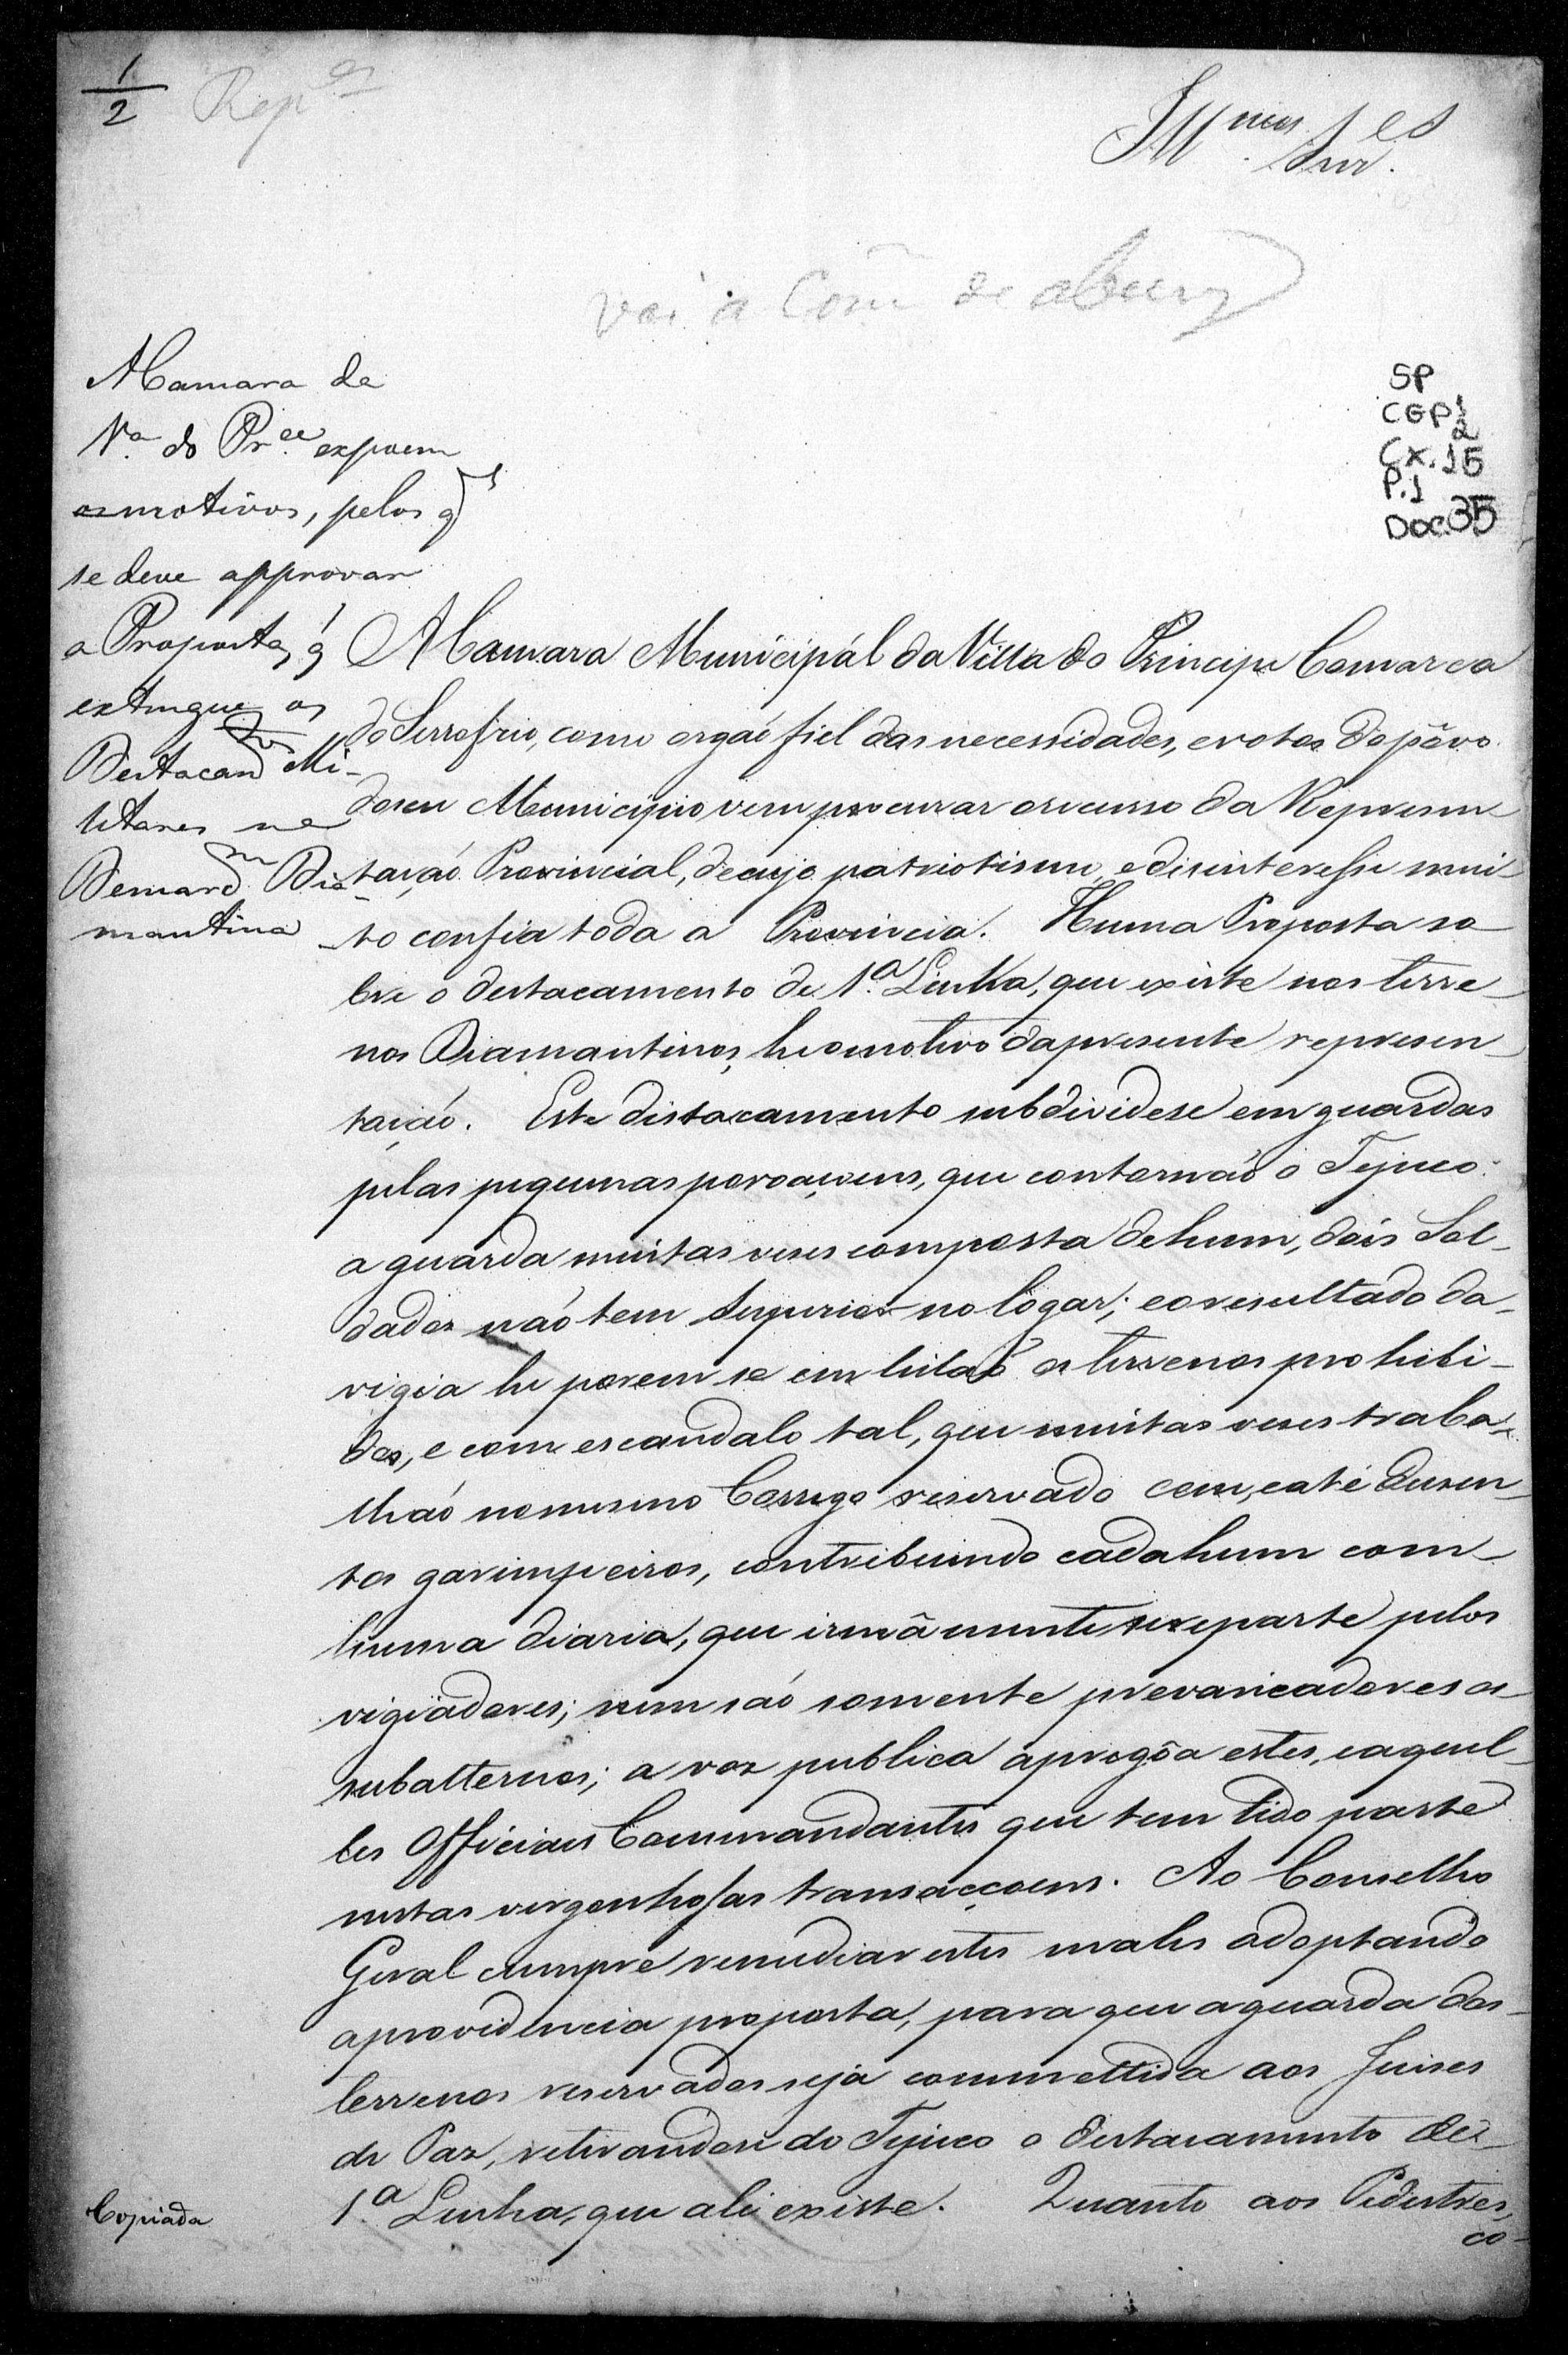 1/2
Rep.es
Illmos Snr.es
vai a Com. de
SP
CGP 1/2
Cx. 15
P. 1
Doc. 35
A Camara da
Va. do Pr.e expoem
os motivos, pelos q
se deve approvar
a Proposta, q'
extingue os
Destacam.tos Mi-
litares na
Demarc.m Dia-
mantina
A Camara Municipál da Villa do Principe Comarca
do Serrofrio, como orgaõ fiel das necessidades, e votos do pôvo
do seu Municipio vem procurar o recurso da Represen
taçaõ Provincial, de cujo patriotismo, e disinteresse mui-
to confia toda a Provincia. Huma Proposta so-
bre o destacamento de 1.a Linha, que existe nos terre-
nos Diamantinos, he o motivo da presente represen-
taçaõ. Este distacamento subdividese em guardas
pelas pequenas povoaçoens, que contornaõ o Tejuco:
a guarda muitas veses composta de hum, dois Sol-
dados naõ tem Superior no logar; e o resultado da
vigia he porem se em os terrenos prohibi-
dos, e com escandalo tal, que muitas veses traba-
lhaõ no mesmo Corrego reservado cem, e até dusen-
tos garimpeiros, contribuindo cada hum com
huma diaria, que irmâmente se reparte pelos
vigiadores; nem saõ somente prevaricadores os
subalternos; a voz publica aprogôa estes, e aquel-
les Officiais Commandantes que tem tido parte
nestas vergonhosas transacçoens. Ao Conselho
Geral cumpre remediar estes males adoptando
a providencia proposta, para que a guarda dos
terrenos reservados seja commettida aos Juises
de Paz, retirandose do Tejuco o destacamento de
1.a Linha, que ali existe. Quanto aos Pedestres,
co-
Copiada